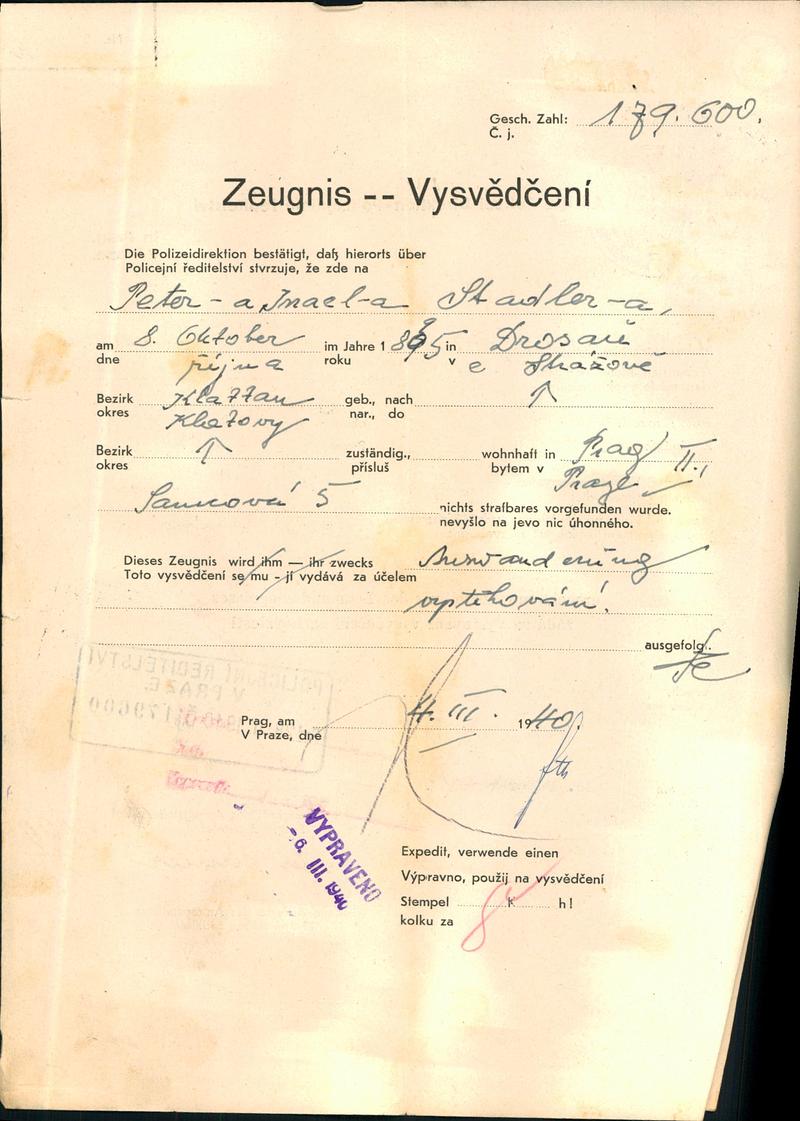 Gesch. Zahl: 179.600.
Č. j.
Zeugnis -- Vysvědčení
Die Polizeidirektion bestätigt, daß hierorts über
Policejní ředitelství stvrzuje, že zde na
Peter-a Israel-a Stadler-a,
am 8. Oktober im Jahre 1895 in Drosau
dne října roku v Strážově
Bezirk Klattau geb., nach
okres Klatovy nar., do
Bezirk zuständig., wohnhaft in Prag II.,
okres přísluš bytem v Praze
5 nichts strafbares vorgefunden wurde.
nevyšlo na jevo nic úhonného.
Dieses Zeugnis wird ihm — ihr zwecks Auswanderung
Toto vysvědčení se mu - jí vydává za účelem
vystěhování.
ausgefolgt.
Prag, am 4. III. 1940.
V Praze, dne
POLICEJNÍ ŘEDITELSTVÍ
V PRAZE
179600
VYPRAVENO
-6. III. 1940
Expedit, verwende einen
Výpravno, použij na vysvědčení
Stempel 8 K h!
kolku za